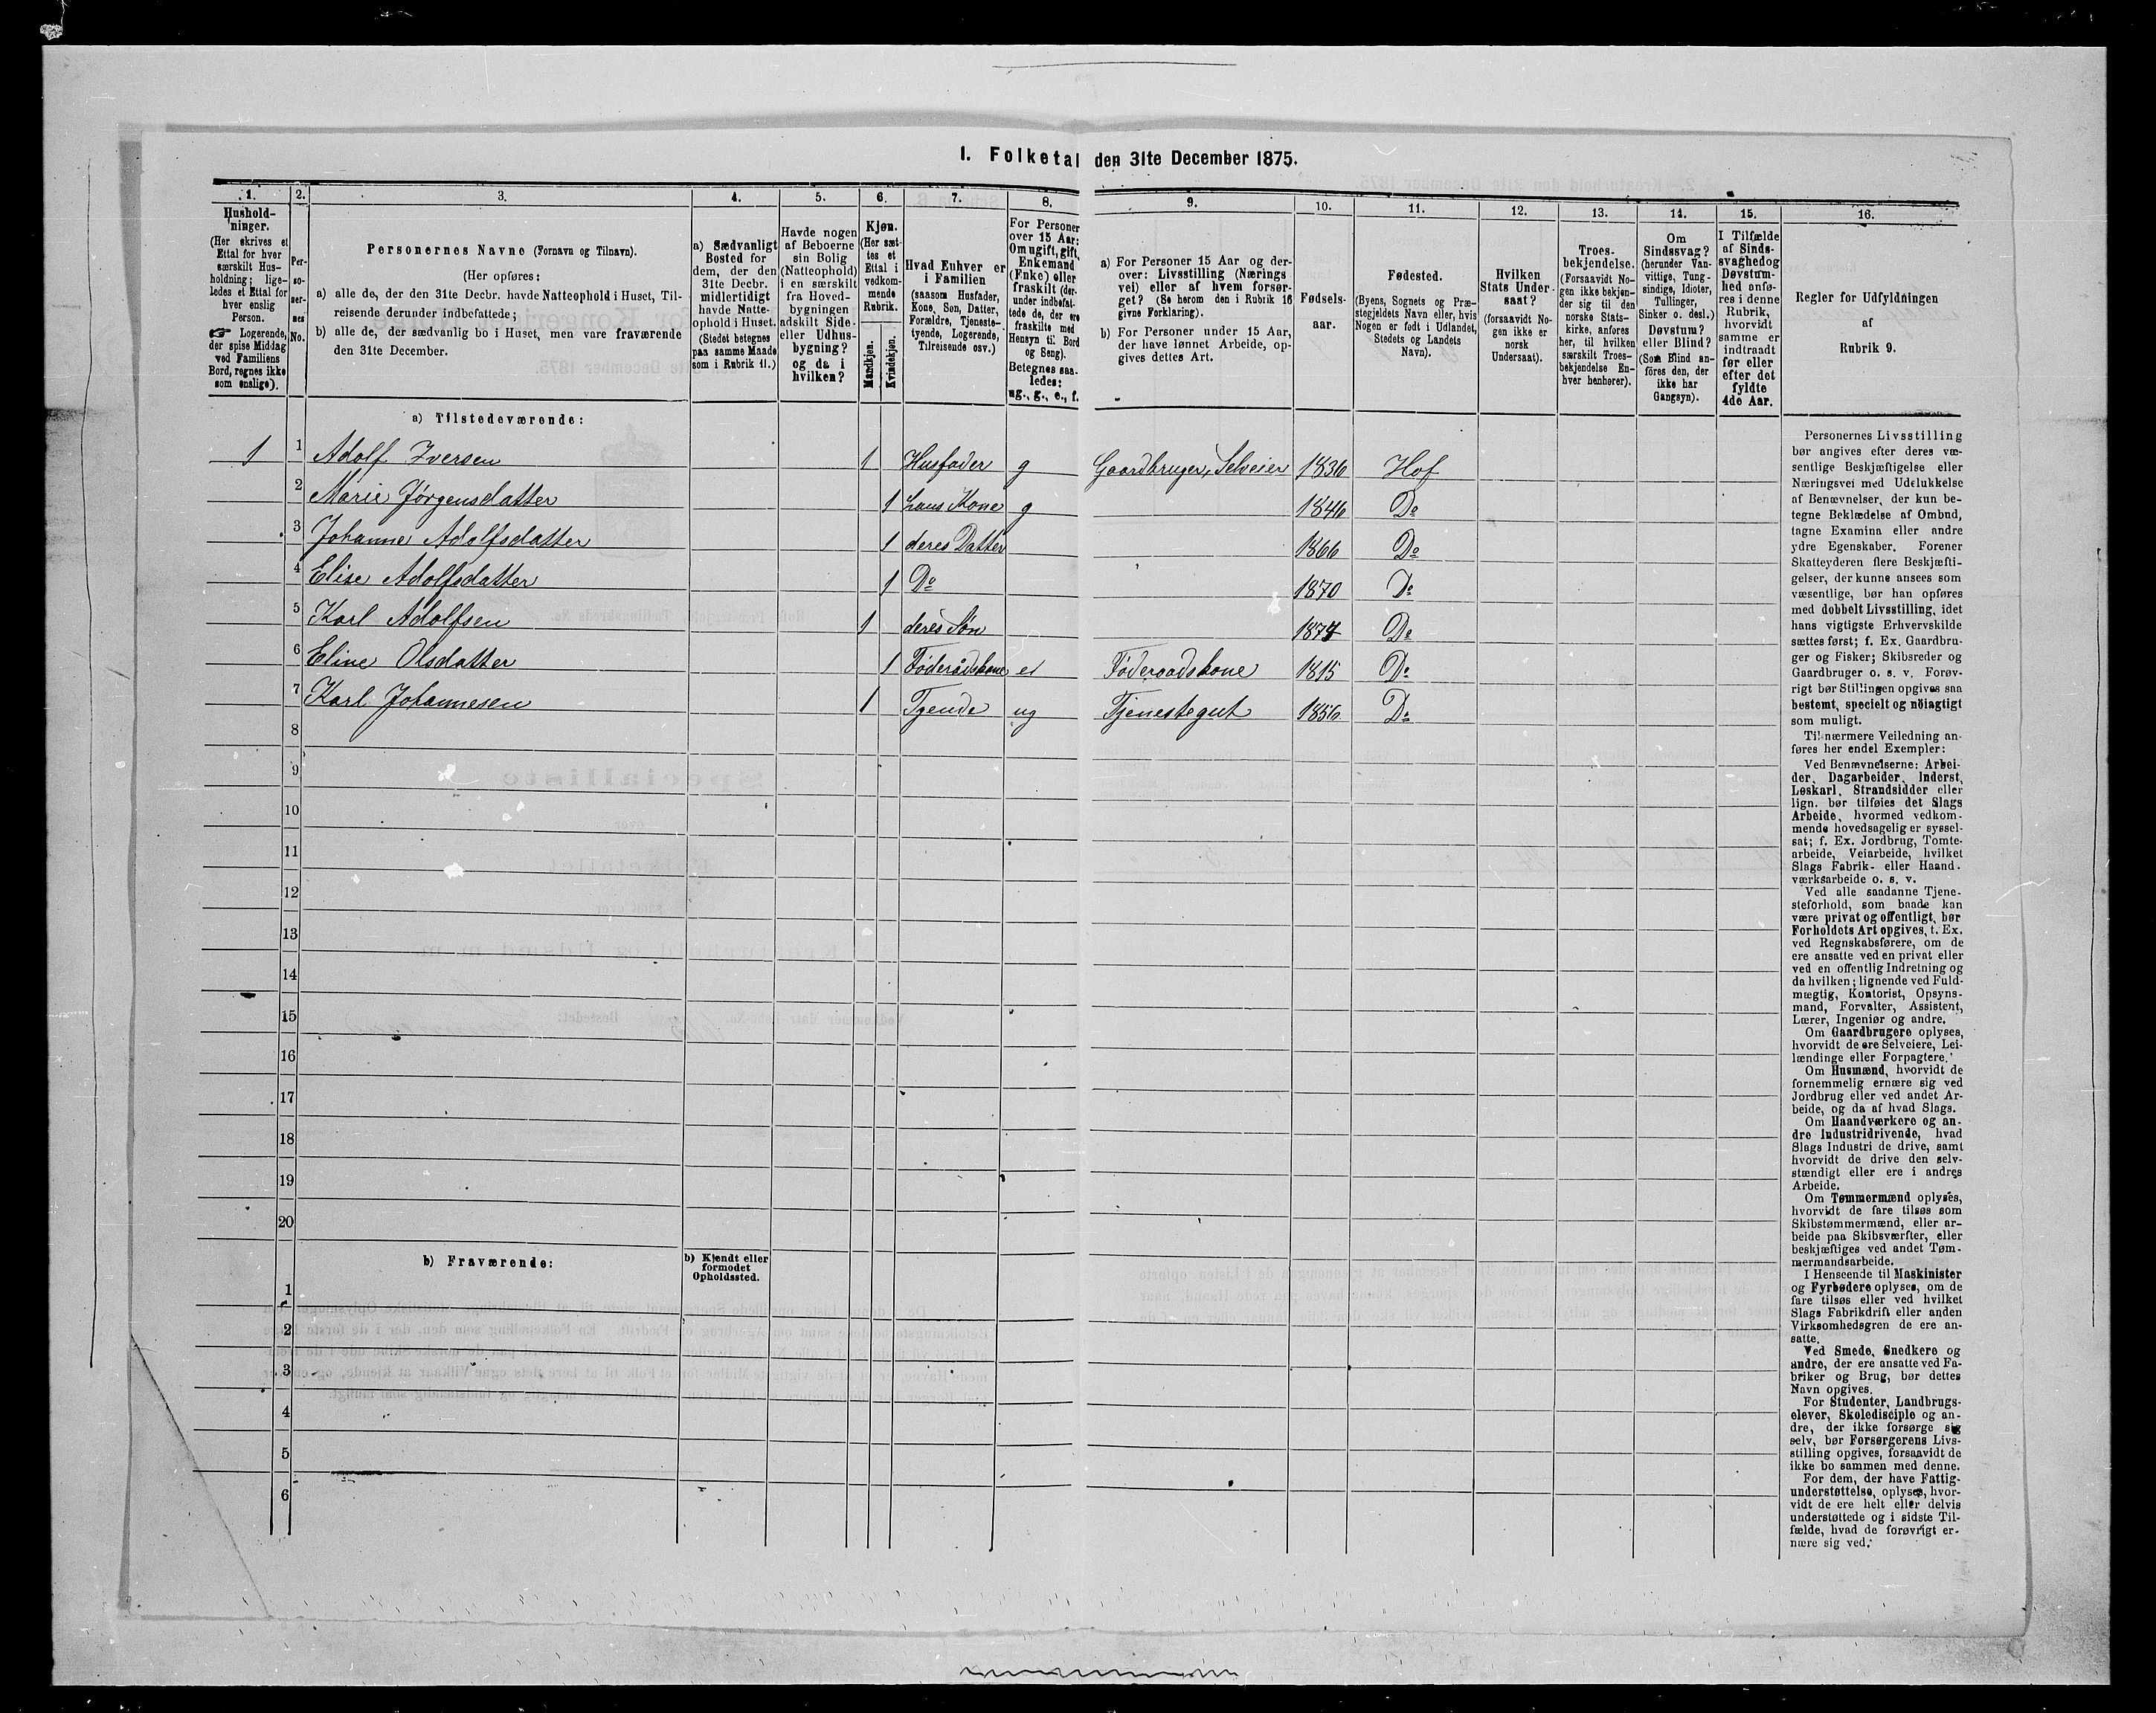 I. Folketal den 31te December 1875.
1. 2. 3. 4. 5. 6. 7. 8. 9. 10. 11. 12. 13. 14. 15. 16.
Hushold-
ninger.
(Her skrives et
Ettal for hver
særskilt Hus-
holdning; lige-
ledes et Ettal for
hver enslig
Person.
☞ Logerende,
der spise Middag
ved Familiens
Bord, regnes ikke
som enslige).
Per-
so-
ner-
nes
No.
Personernes Navne (Fornavn og Tilnavn).
(Her opføres:
a) alle de, der den 31te Decbr. havde Natteophold i Huset, Til-
reisende derunder indbefattede;
b) alle de, der sædvanlig bo i Huset, men vare fraværende
den 31te December.
a) Sædvanligt
Bosted for
dem, der den
31te Decbr.
midlertidigt
havde Natte-
ophold i Huset.
(Stedet betegnes
paa samme Maade
som i Rubrik 11.)
Havde nogen
af Beboerne
sin Bolig
(Natteophold)
i en særskilt
fra Hoved-
bygningen
adskilt Side-
eller Udhus-
bygning?
og da i
hvilken?
Kjøn.
(Her sæt-
tes et
Ettal i
vedkom-
mende
Rubrik.
Mandkjøn.
Kvindekjøn.
Hvad Enhver er
i Familien
(saasom Husfader,
Kone, Søn, Datter,
Forældre, Tjeneste-
tyende, Logerende,
Tilreisende osv.)
For Personer
over 15 Aar:
Om ugift, gift,
Enkemand
(Enke) eller
fraskilt (der-
under indbefat-
tede de, der ere
fraskilte med
Hensyn til Bord
og Seng).
Betegnes saa-
ledes:
ug., g., e., f.
a) For Personer 15 Aar og der-
over: Livsstilling (Nærings
vei) eller af hvem forsør-
get? (Se herom den i Rubrik 16
givne Forklaring).
b) For Personer under 15 Aar,
der have lønnet Arbeide, op-
gives dettes Art.
Fødsels-
aar.
Fødested.
(Byens, Sognets og Præ-
stegjeldets Navn eller, hvis
Nogen er født i Udlandet,
Stedets og Landets
Navn).
Hvilken
Stats Under-
saat?
(forsaavidt No-
gen ikke er
norsk
Undersaat).
Troes-
bekjendelse.
(Forsaavidt No-
gen ikke bekjen-
der sig til den
norske Stats-
kirke, anføres
her, til hvilken
særskilt Troes-
bekjendelse En-
hver henhører).
Om
Sindssvag?
(herunder Van-
vittige, Tung-
sindige, Idioter,
Tullinger,
Sinker o. desl.)
Døvstum?
eller Blind?
(Som Blind an-
føres den, der
ikke har
Gangsyn).
I Tilfælde
af Sinds-
svaghed og
Døvstum-
hed anfø-
res i denne
Rubrik,
hvorvidt
samme er
indtraadt
før eller
efter det
fyldte
4de Aar.
Regler for Udfyldningen
af
Rubrik 9.
a) Tilstedeværende:
1 1 Adolf Iversen 1 Husfader g Gaardbruger, Selveier 1836 Hof
2 Marie Jørgensdatter 1 hans Kone g 1846 Do
3 Johanne Adolfsdatter 1 deres Datter 1866 Do
4 Elise Adolfsdatter 1 Do 1870 Do
5 Karl Adolfsen 1 deres Søn Do
6 Eline Olsdatter 1 Føderådskone e Føderaadskone 1815 Do
7 Karl Johannesen 1 Tyende ug Tjenestegut 1856 Do
8
9
10
11
12
13
14
15
16
17
18
19
20
b) Fraværende:
b) Kjendt eller
formodet
Opholdssted.
1
2
3
4
5
6
Personernes Livsstilling
bør angives efter deres væ-
sentlige Beskjæftigelse eller
Næringsvei med Udelukkelse
af Benævnelser, der kun be-
tegne Beklædelse af Ombud,
tagne Examina eller andre
ydre Egenskaber. Forener
Skatteyderen flere Beskjæfti-
gelser, der kunne ansees som
væsentlige, bør han opføres
med dobbelt Livsstilling, idet
hans vigtigste Erhvervskilde
sættes først; f. Ex. Gaardbru-
ger og Fisker; Skibsreder og
Gaardbruger o. s. v. Forøv-
rigt bør Stillingen opgives saa
bestemt, specielt og nöiagtigt
som muligt.
Til nærmere Veiledning an-
føres her endel Exempler:
Ved Benævnelserne: Arbei-
der, Dagarbeider, Inderst,
Løskarl, Strandsidder eller
lign. bør tilføies det Slags
Arbeide, hvormed vedkom-
mende hovedsagelig er syssel-
sat; f. Ex. Jordbrug, Tomte-
arbeide, Veiarbeide, hvilket
Slags Fabrik- eller Haand-
værksarbeide o. s. v.
Ved alle saadanne Tjene-
steforhold, som baade kan
være privat og offentligt, bør
Forholdets Art opgives, t. Ex.
ved Regnskabsførere, om de
ere ansatte ved en privat eller
ved en offentlig Indretning og
da hvilken; lignende ved Fuld-
mægtig, Kontorist, Opsyns-
mand, Forvalter, Assistent,
Lærer, Ingeniør og andre.
Om Gaardbrugere oplyses,
hvorvidt de ere Selveiere, Lei-
lændinge eller Forpagtere.
Om Husmænd, hvorvidt de
fornemmelig ernære sig ved
Jordbrug eller ved andet Ar-
beide, og da af hvad Slags.
Om Haandværkere og an-
dre Industridrivende, hvad
Slags Industri de drive, samt
hvorvidt de drive den selv-
stændigt eller ere i andres
Arbeide.
Om Tømmermænd oplyses,
hvorvidt de fare tilsøs som
Skibstømmermænd, eller ar-
beide paa Skibsværfter, eller
beskjæftiges ved andet Tøm-
mermandsarbeide.
I Henseende til Maskinister
og Fyrbødere oplyses, om de
fare tilsøs eller ved hvilket
Slags Fabrikdrift eller anden
Virksomhedsgren de ere an-
satte.
Ved Smede, Snedkere og
andre, der ere ansatte ved Fa-
briker og Brug, bør dettes
Navn opgives.
For Studenter, Landbrugs-
elever, Skoledisciple og an-
dre, der ikke forsørge sig
selv, bør Forsørgerens Livs-
stilling opgives, forsaavidt de
ikke bo sammen med denne.
For dem, der have Fattig-
understøttelse, oplyses, hvor-
vidt de ere helt eller delvis
understøttede og i sidste Til-
fælde, hvad de forøvrigt er-
nære sig ved.